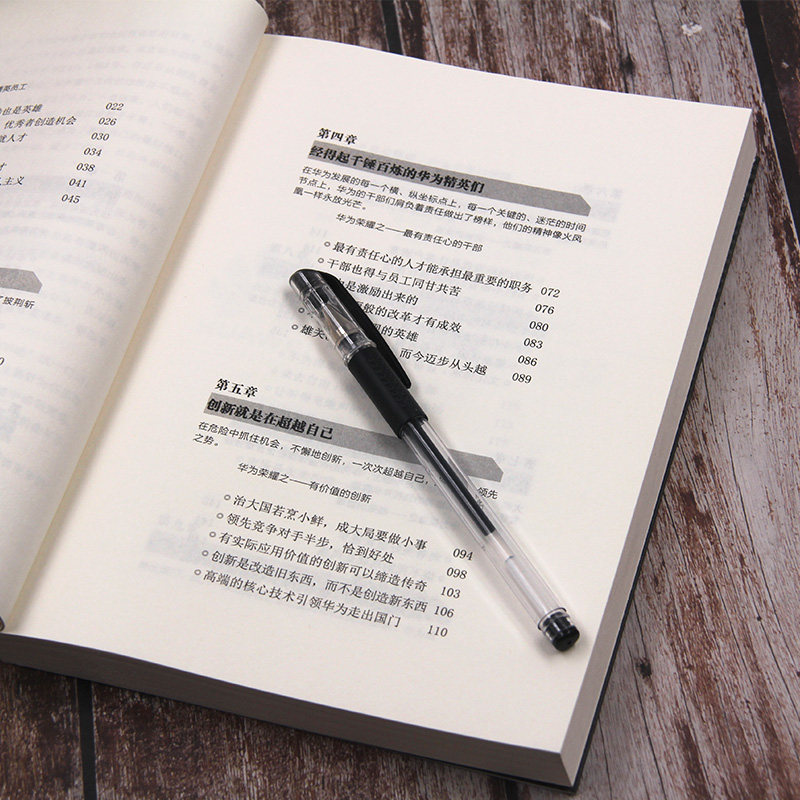 精英员工
也是英雄 022
优秀者创造机会 026
人才 030
034
才 038
主义 041
045
了披荆斩
0
第四章
经得起千锤百炼的华为精英们
在华为发展的每一个横、纵坐标点上，每一个关键的、迷茫的时间
节点上，华为的干部们肩负着责任做出了榜样，他们的精神像火凤
凰一样永放光芒。
华为荣耀之——最有责任心的干部
最有责任心的人才能承担最重要的职务 072
干部也得与员工同甘共苦 076
也是激励出来的 080
般的改革才有成效 083
的英雄 086
雄关 而今迈步从头越 089
第五章
创新就是在超越自己
在危险中抓住机会，不懈地创新，一次次超越自己， 领先
之势。
华为荣耀之——有价值的创新
治大国若烹小鲜，成大局要做小事 094
领先竞争对手半步，恰到好处 098
有实际应用价值的创新可以缔造传奇 103
创新是改造旧东西，而不是创造新东西 106
高端的核心技术引领华为走出国门 110